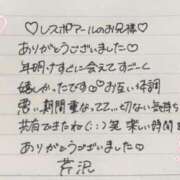 ♡レスポアールのお兄様♡
ありがとうございました♡
年明けすぐに会えてすごーく
嬉しかったです◎お互い体調
悪い期間重なってて…切ない気持ち
共有できたね(:;)笑 楽しい時間を
ありがとうございました
芹沢